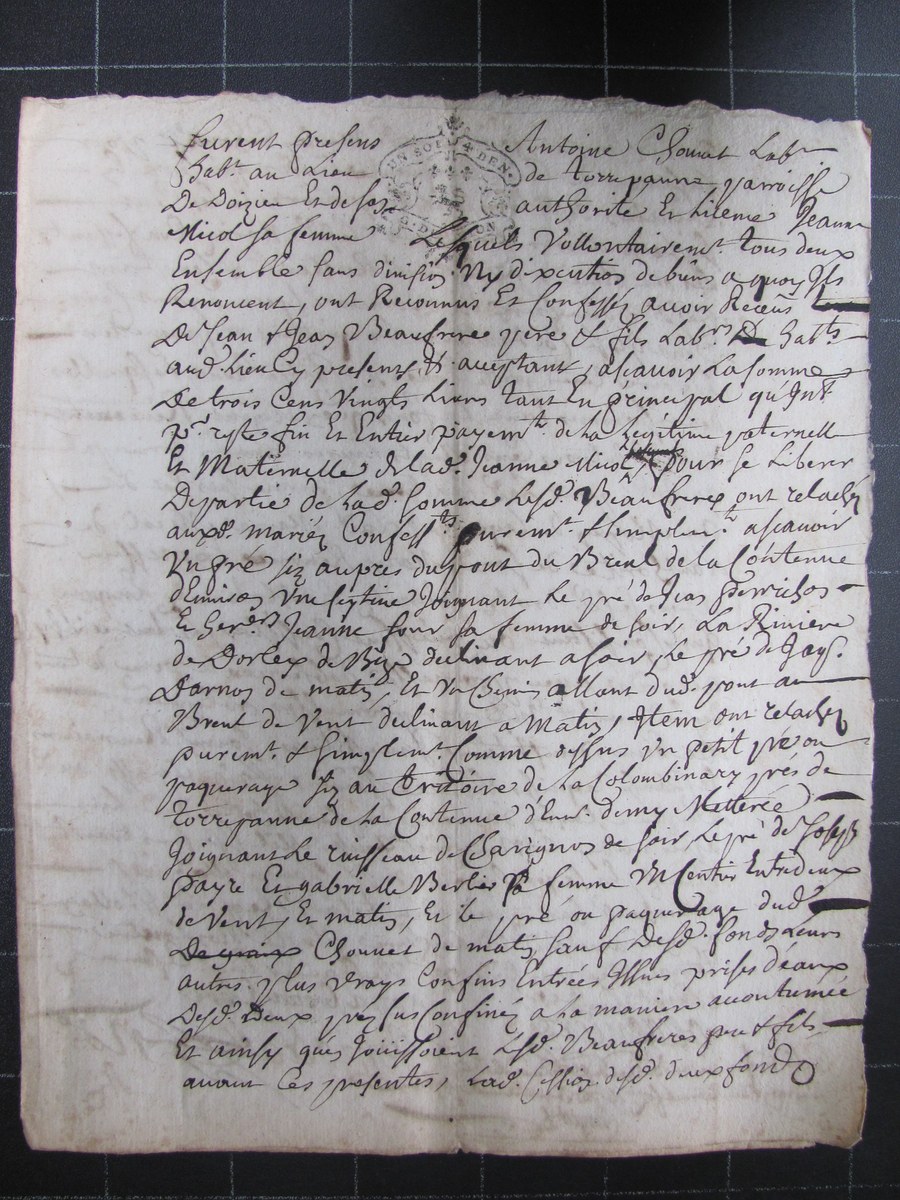 furent presens Antoine Chouvet Lab.r
habt. au Lieu de torrepanne, parroisse
De Doizieu Et de son authorité Et licence Jeanne
Nicol sa femme Lesquels Vollontairemt. tous deux
Ensemble sans division Ny dixcution de biens a quoy Ils
Renoncent, ont Reconnus Et Confessé avoir Receus
De Jean & Jean Beaufrere pere & fils Labrs. habts
aud. Lieu Cy presents & aceptant, ascavoir La somme
De trois Cens Vingts Livres tant En principal qu'Intt
pr. reste fin Et Entier payemt. de La Legitime paternelle
Et Maternelle de Lad. Jeanne Nicol, pour se Liberer
De partie de Lad. somme Lesd. Beaufreres ont relaché
auxd. mariés Confessts. puremt. & simplemt. ascavoir
Un pré siz aupres du pont du Breul de la Contenue
d'Environ Une septine Joignant Le pré de Jean Perrichon
Et Jeanne four sa femme de soir, La Riviere
de Dorlex de Bize declinant a soir, Le pré de Jay.
Darnos de matin, Et Un Chemin allant dud. pont au
Breul de Vent declinant a Matin, Item ont relaché
puremt. & simplemt. Comme dessus Un petit pré ou
paquerage siz au territoire de La Colombinary prés de
torrepanne de La Contenue d'Env. demy Metterée
Joignant Le ruisseau de Charignon de soir, Le pré de Joseph
payre Et gabrielle Berlier sa femme Un Sentier Entredeux
de Vent, Et matin, Et le pré ou paquerage dud.
Chouvet de matin, sauf Desd. fonds Leurs
autres plus Vrays Confins Entrées Issues prises d'eaux
Desd. Deux prés sus Confinés a la maniere acoutumée
Et ainsy qu'en Jouissoient Lesd. Beaufreres pere & fils
avant Ces presentes, Lad. Cession desd. deux fonds
UN SOL DEN.